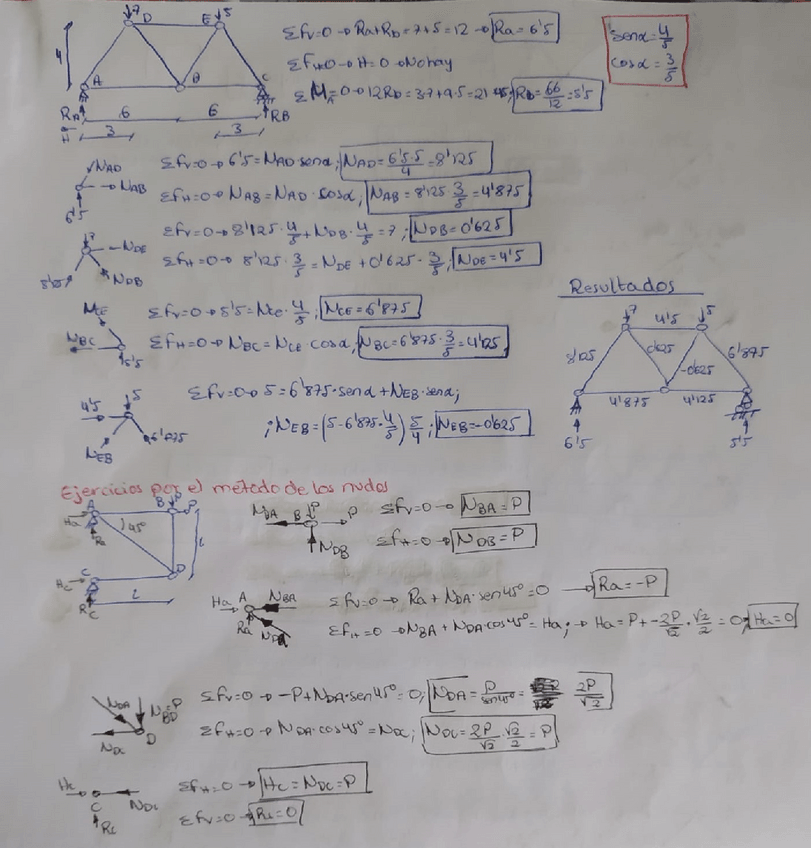 7 D E 5
4
A B C
RA RB
H
6 6
3 3
Σfv=0 → Ra+RD=7+5=12 → Ra=6'5
Σfx=0 → H=0 → No hay
senα=4/5
cosα=3/5
6'5 NAD NAB
Σfv=0 → 6'5=NAD senα; NAD=6'5·5/4=8'125
ΣfH=0 → NAB=NAD·cosα; NAB=8'125·3/5=4'875
7 NDE NDB
Σfv=0 → 8'125·4/5+NDB·4/5=7; NDB=0'625
Σfh=0 → 8'125·3/5=NDE+0'625·3/5; NDE=4'5
NCE NBC 5'5
Σfv=0 → 5'5=NCE·4/5; NCE=6'875
Σfh=0 → NBC=NCE cosα; NBC=6'875·3/5=4'125
4'5 5 NEB 6'875
Σfv=0 → 5=6'875·senα+NEB·senα;
;NEB=(5-6'875·4/5)5/4; NEB=-0'625
Resultados
7 4'5 5
8'125 0'625 -0'625 6'875
4'875 4'125
6'5 5'5
Ejercicios por el método de los nudos
Ha A B P P
Ra 45° l
Hc C D
Rc l
NBA B P P NDB
Σfv=0 → NBA=P
Σfh=0 → NDB=P
Ha A NBA Ra NDA
Σfv=0 → Ra+NDA·sen45°=0 → Ra=-P
Σfh=0 → NBA+NDA·cos45°=Ha; → Ha=P+-2P/√2·√2/2=0; Ha=0
NDA NBD=P NDC D
Σfv=0 → -P+NDA·sen45°=0; NDA=P/sen45°= 2P/√2
Σfh=0 → NDA·cos45°=NDC; NDC=2P/√2·√2/2=P
Hc C NDC Rc
Σfh=0 → Hc=NDC=P
Σfv=0 → Rc=0